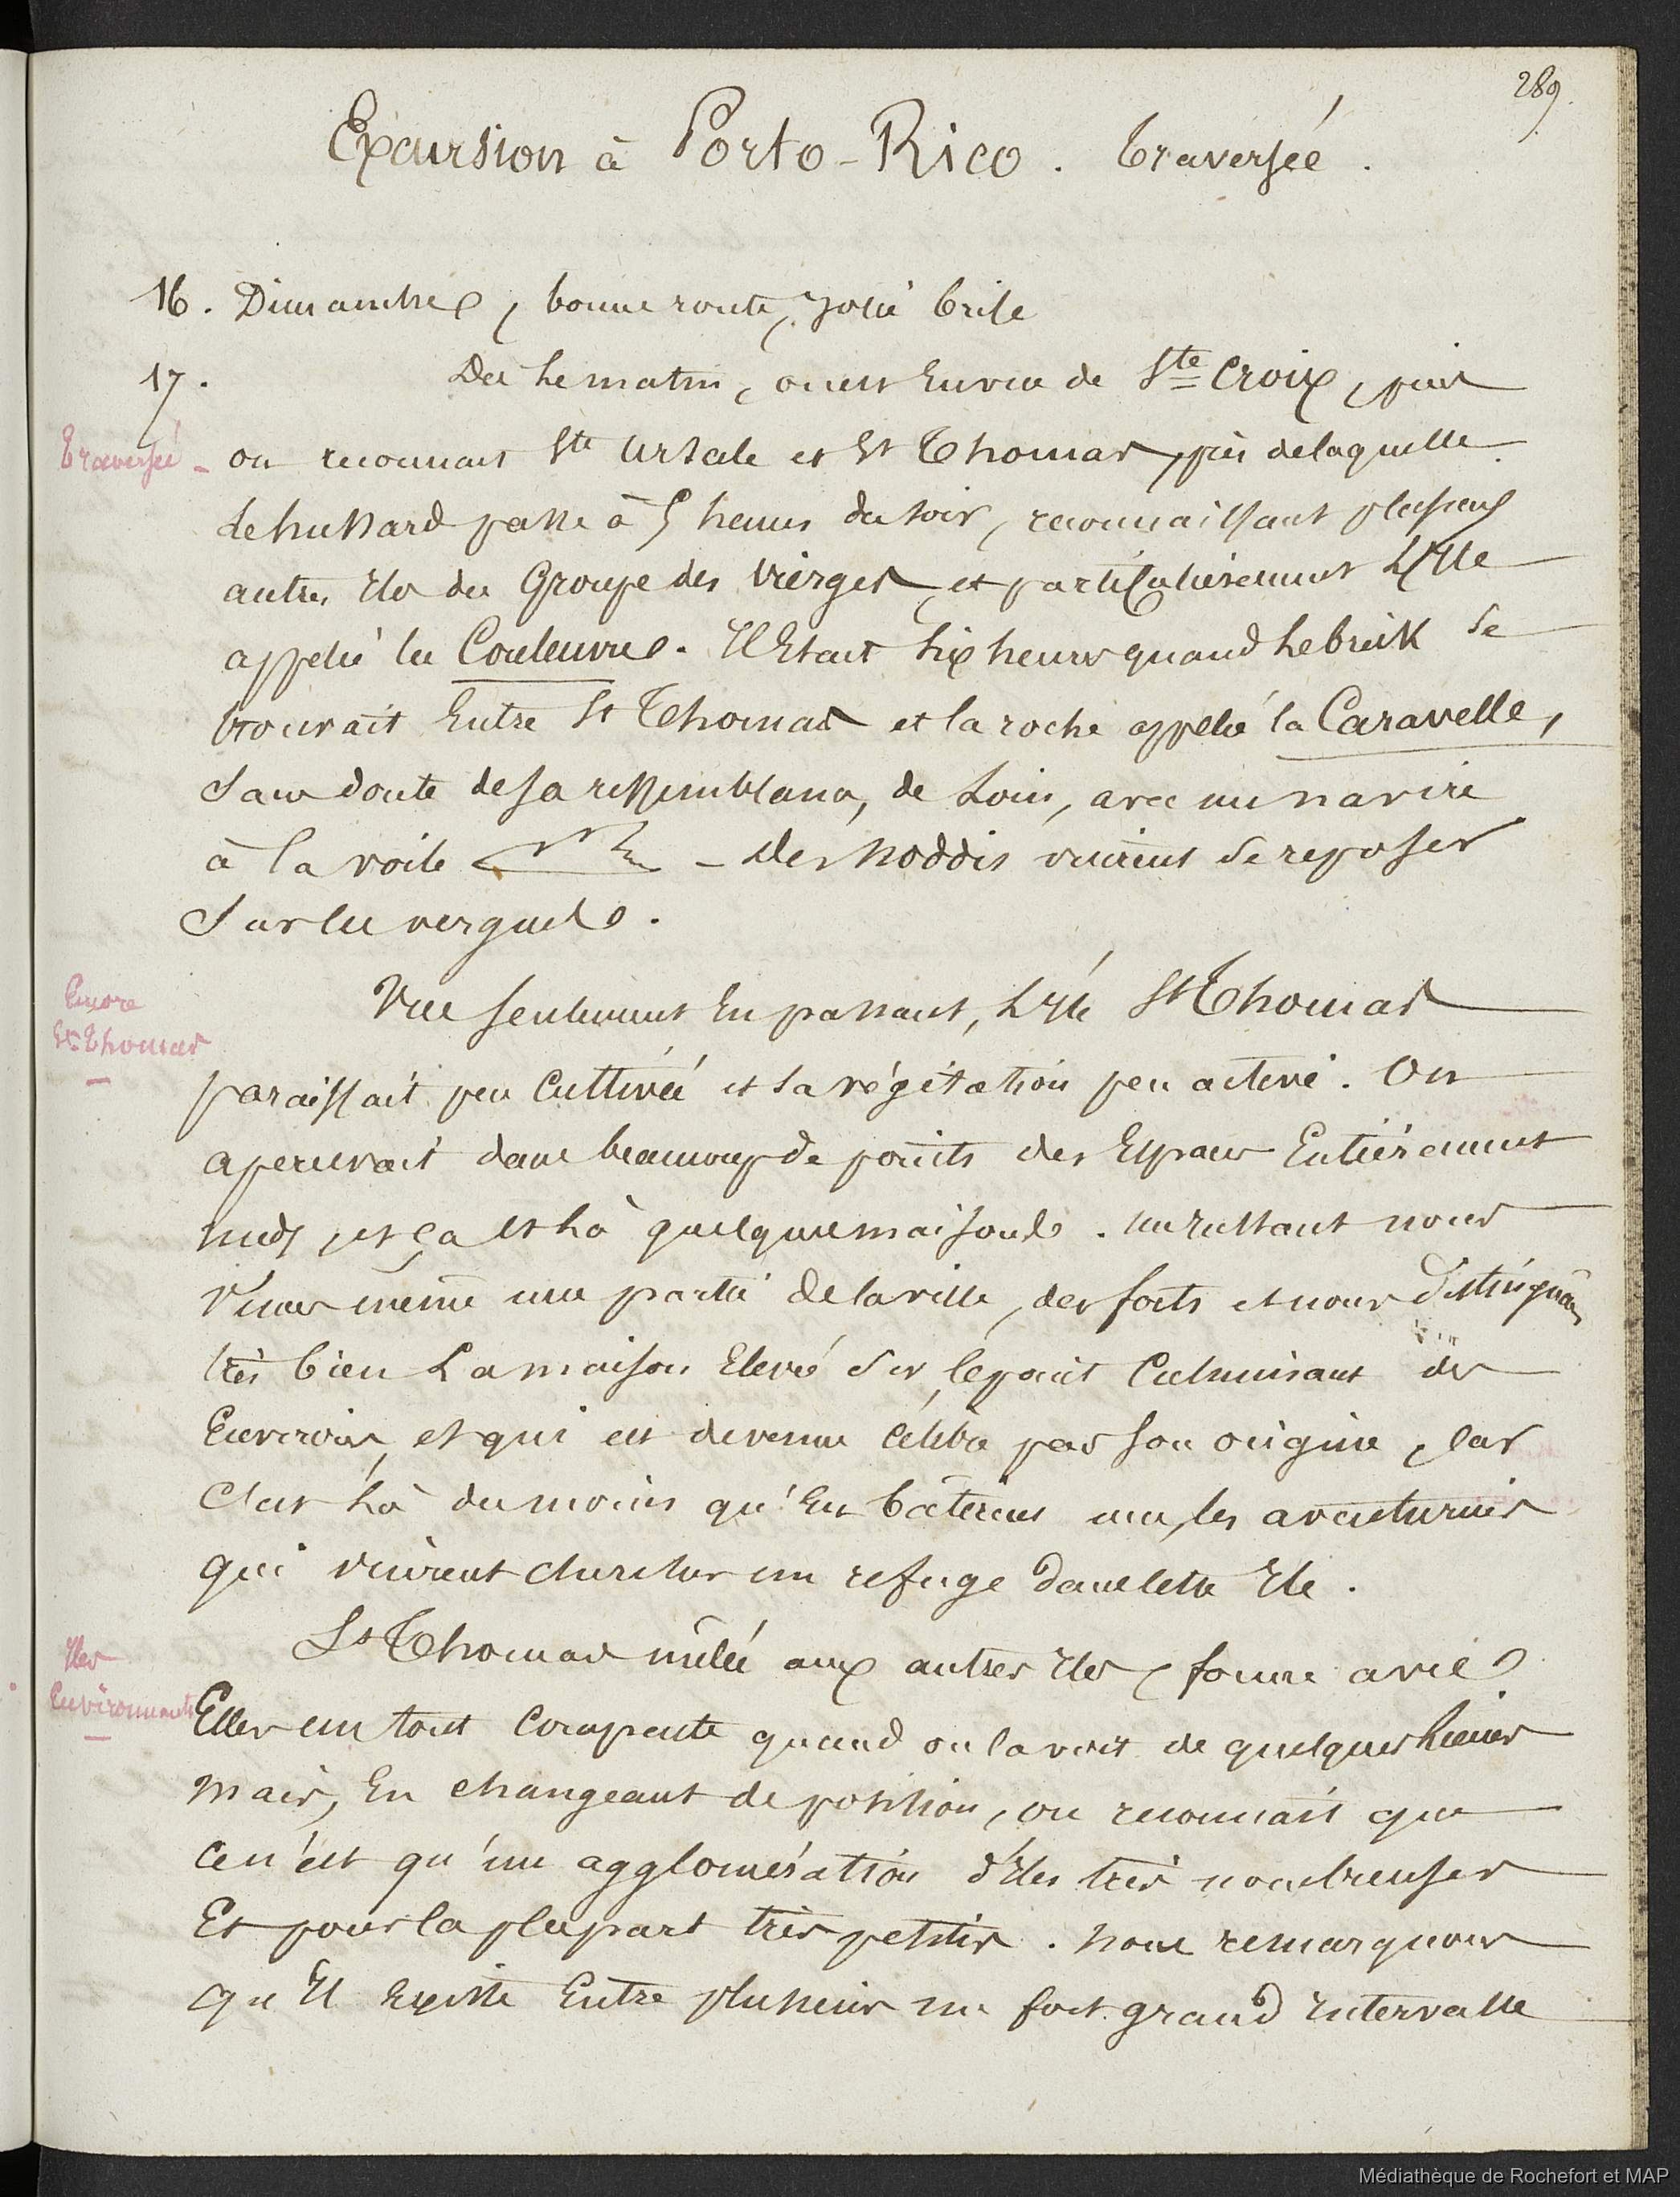 289.
Excursion à Porto-Rico. Traversée.
16. Dimanche, bonne route, Jolie brise
17. Dès le matin, on est En vue de Ste Croix, puis
Traversée _ on reconnait Ste Ursule et St Thomas, près de laquelle
Le hussard passe à 5 heures du soir, reconnaissant plusieurs
autres Iles du Groupe des Vierges, et particulièrement L'Ile
appelée la Couleuvre. Il Etait Six heures quand le brick se
trouvait Entre St Thomas et la roche appelée la Caravelle,
Sans doute de sa ressemblance, de Loin, avec un navire
à la voile _ des noddis vinrent se reposer
Sur les vergues.
Encore
St Thomas
_
Vue seulement En passant, L'Ile St Thomas
paraissait peu Cultivée et sa végétation peu active. On
apercevait dans beaucoup de points des Espaces Entièrement
nuds, et ça et là quelques maisons. un instant nous
vîmes même une partie de la ville, des forts et nous distinguâmes
très bien La maison Elevée sur le point Culminant des
Environs, et qui est devenue célèbre par son origine, Car
C'est là du moins qu'En bâtirent une, les aventuriers
qui vinrent chercher un refuge dans cette Ile.
Iles
Environnantes
_
St Thomas mêlée aux autres Iles, forme avec
Elles un tout Compacte quand on la voit de quelques Lieues
mais, En changeant de position, on reconnait que
Ce n'est qu'une agglomération d'Iles très nombreuses
Et pour la plupart très petites. nous remarquons
qu'Il Existe Entre plusieurs un fort grand Intervalle
Médiathèque de Rochefort et MAP